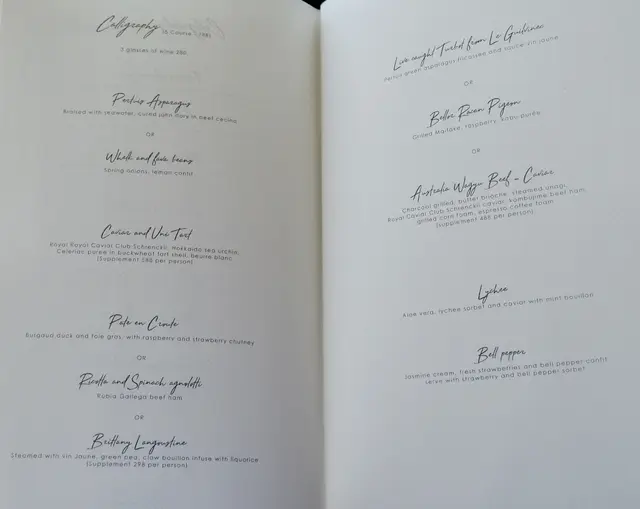 Calligraphy (6 Course 1,788)
3 glasses of wine 380
Pertuis Asparagus
Brined with seawater, cured john dory in beef cecina
OR
Whelk and fava beans
Spring onions, lemon confit
Caviar and Uni Tart
Royal Royal Caviar Club Schrenckii, Hokkaido sea urchin,
Celeriac puree in buckwheat tart shell, beurre blanc
(Supplement 288 per person)
Pate en Croute
Burgaud duck and foie gras, with raspberry and strawberry chutney
OR
Ricotta and Spinach agnolotti
Rubia Gallega beef ham
OR
Brittany Langoustine
Steamed with vin jaune, green pea, claw bouillon infuse with liquorice
(Supplement 298 per person)
Live caught Turbot from Le Guilvinec
Pertuis green asparagus fricassee and sauce vin jaune
OR
Bellor Racan Pigeon
Grilled Maitake, raspberry, kabu purée
OR
Australia Wagyu Beef - Caviar
Charcoal grilled, butter brioche, steamed unagi,
Royal Caviar Club Schrenckii caviar, kombujime beef ham,
grilled corn foam, espresso coffee foam
(Supplement 488 per person)
Lychee
Aloe vera, lychee sorbet and caviar with mint bouillon
Bell pepper
Jasmine cream, fresh strawberries and bell pepper confit
serve with strawberry and bell pepper sorbet